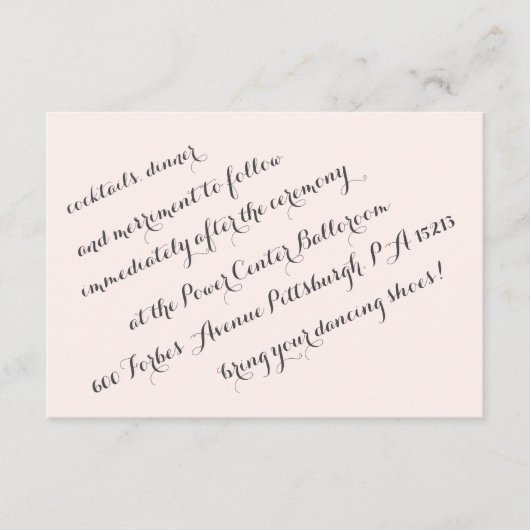 cocktails, dinner
and merriment to follow
immediately after the ceremony
at the Power Center Balloroom
600 Forbes Avenue Pittsburgh, PA 15213
bring your dancing shoes!